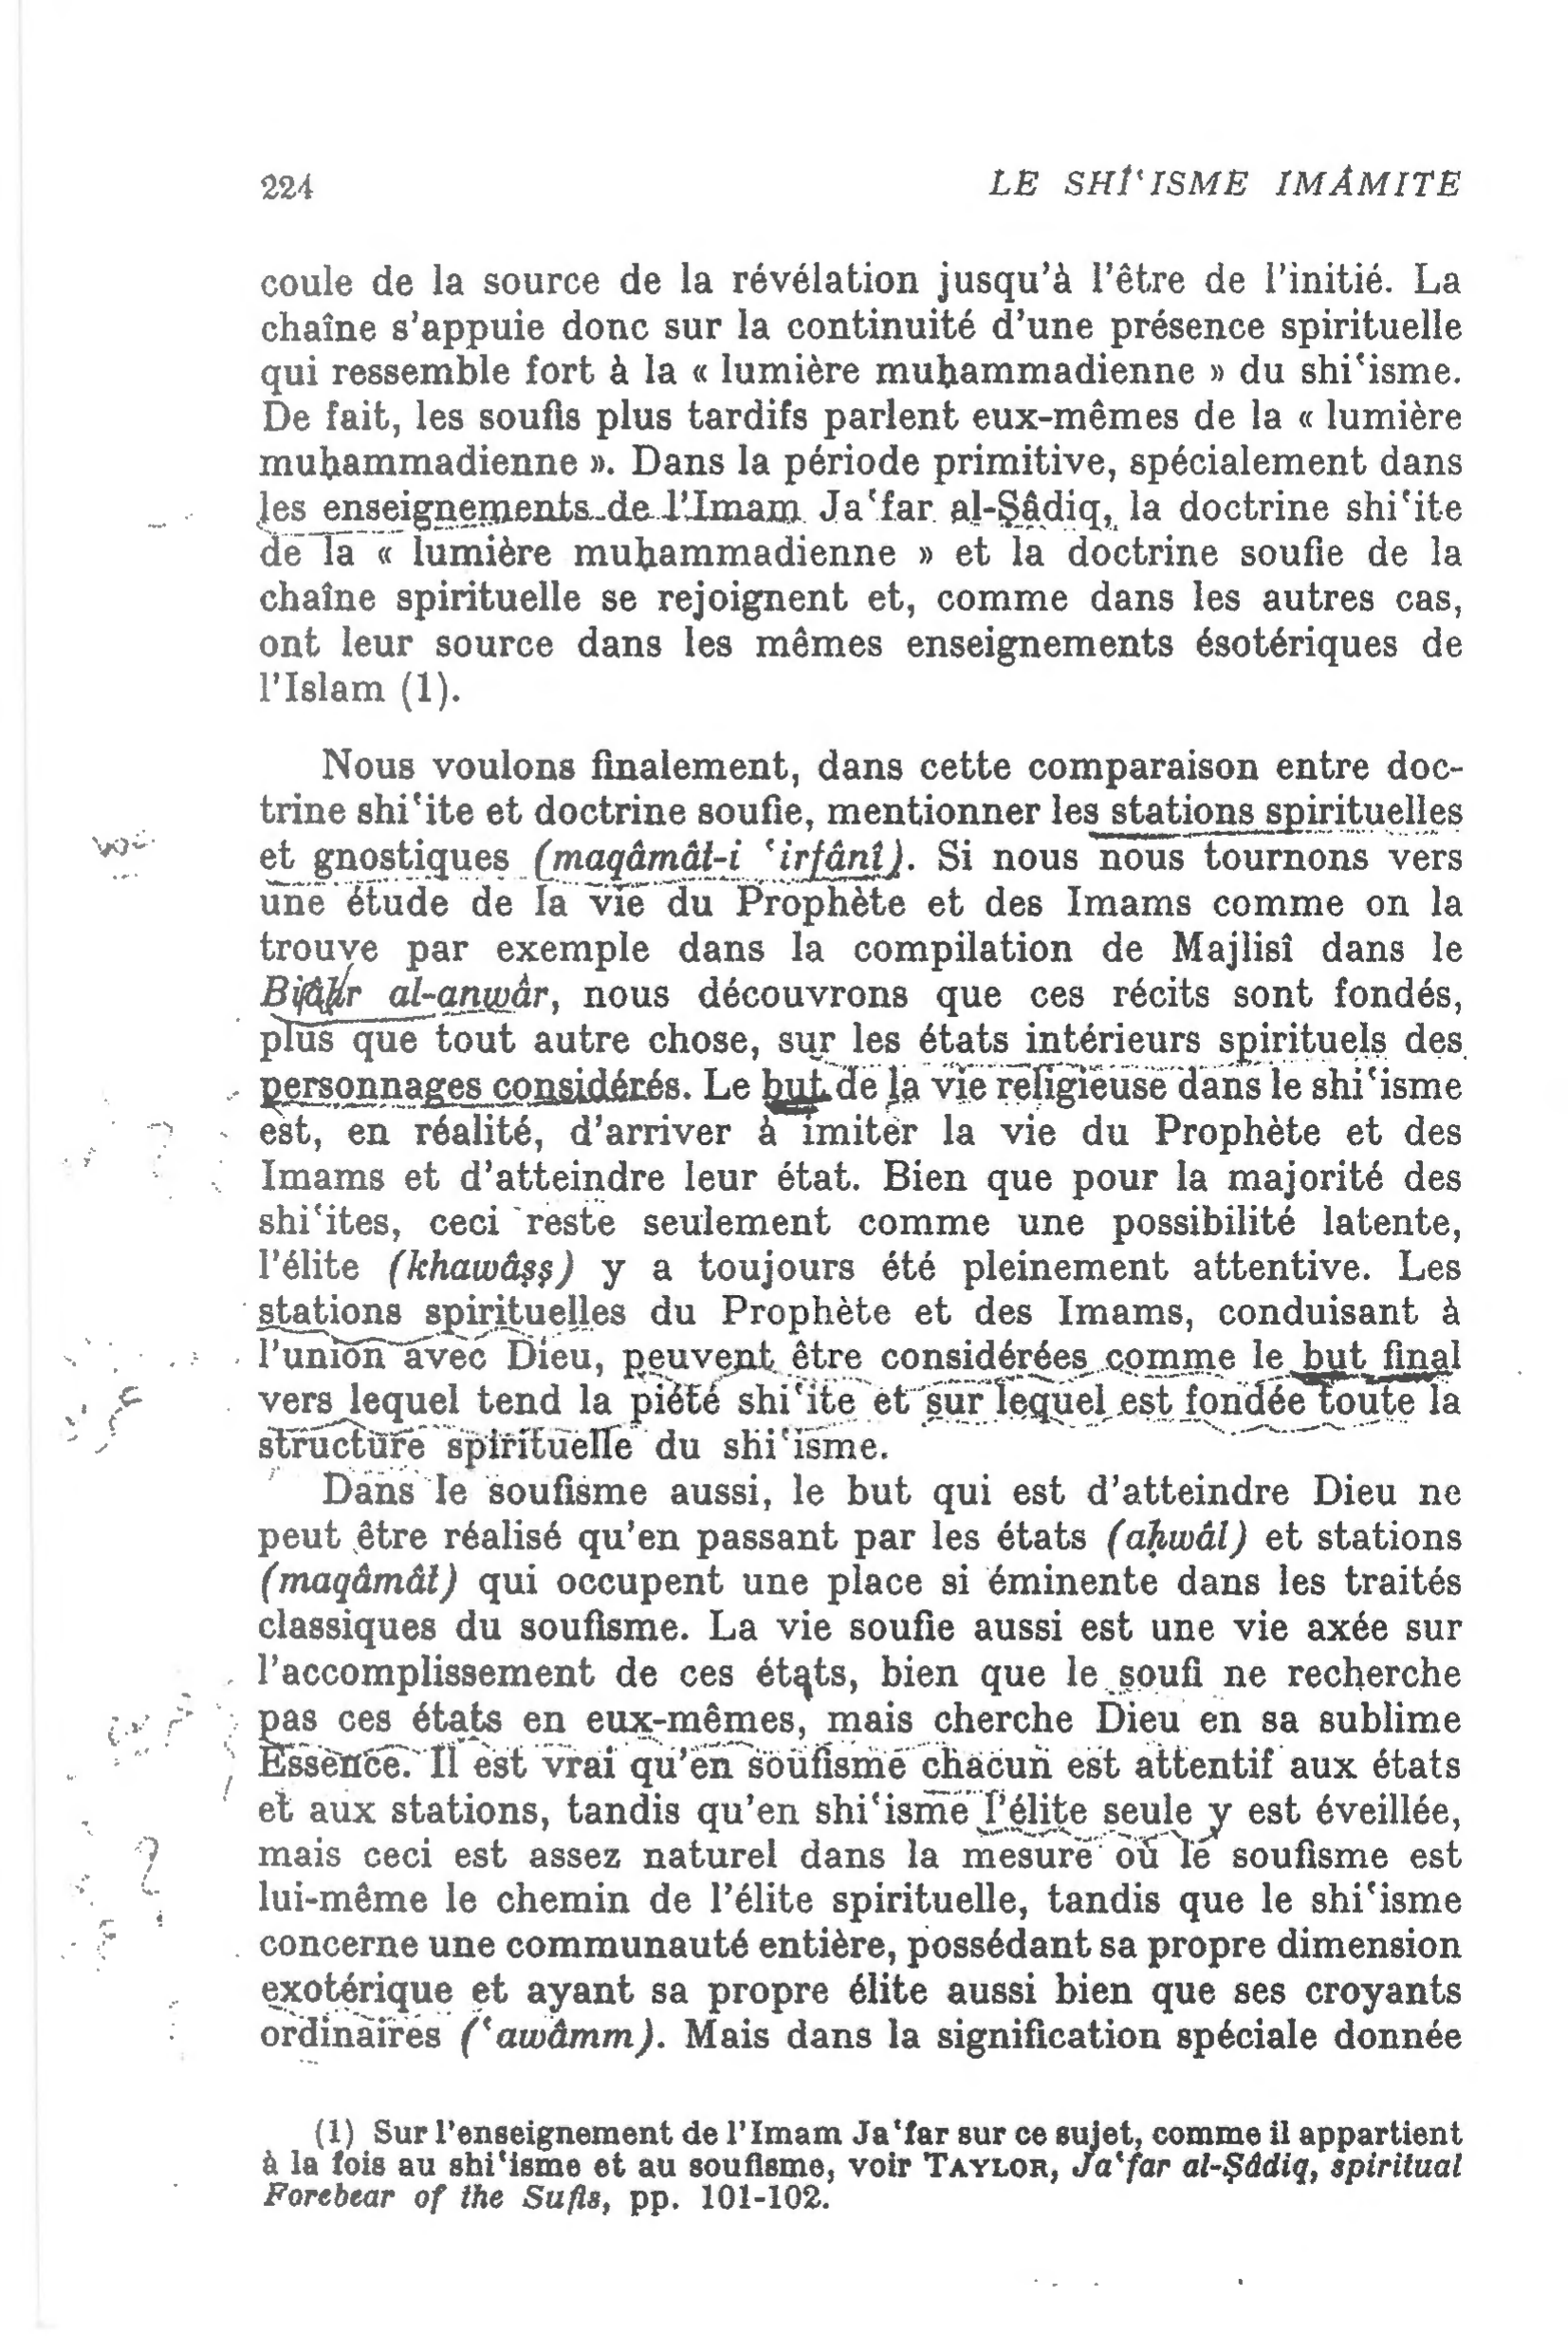 224
LE SHÎ‘ISME IMÂMITE
coule de la source de la révélation jusqu’à l’être de l’initié. La
chaîne s’appuie donc sur la continuité d’une présence spirituelle
qui ressemble fort à la « lumière muḥammadienne » du shi‘isme.
De fait, les soufis plus tardifs parlent eux-mêmes de la « lumière
muḥammadienne ». Dans la période primitive, spécialement dans
les enseignements de l’Imam Ja‘far al-Ṣâdiq, la doctrine shi‘ite
de la « lumière muḥammadienne » et la doctrine soufie de la
chaîne spirituelle se rejoignent et, comme dans les autres cas,
ont leur source dans les mêmes enseignements ésotériques de
l’Islam (1).
Nous voulons finalement, dans cette comparaison entre doc-
trine shi‘ite et doctrine soufie, mentionner les stations spirituelles
et gnostiques (maqâmât-i ‘irfânî). Si nous nous tournons vers
une étude de la vie du Prophète et des Imams comme on la
trouve par exemple dans la compilation de Majlisî dans le
al-anwâr, nous découvrons que ces récits sont fondés,
plus que tout autre chose, sur les états intérieurs spirituels des
personnages considérés. Le but de la vie religieuse dans le shi‘isme
est, en réalité, d’arriver à imiter la vie du Prophète et des
Imams et d’atteindre leur état. Bien que pour la majorité des
shi‘ites, ceci reste seulement comme une possibilité latente,
l’élite (khawâṣṣ) y a toujours été pleinement attentive. Les
stations spirituelles du Prophète et des Imams, conduisant à
l’union avec Dieu, peuvent être considérées comme le but final
vers lequel tend la piété shi‘ite et sur lequel est fondée toute la
structure spirituelle du shi‘isme.
Dans le soufisme aussi, le but qui est d’atteindre Dieu ne
peut être réalisé qu’en passant par les états (aḥwâl) et stations
(maqâmât) qui occupent une place si éminente dans les traités
classiques du soufisme. La vie soufie aussi est une vie axée sur
l’accomplissement de ces états, bien que le soufi ne recherche
pas ces états en eux-mêmes, mais cherche Dieu en sa sublime
Essence. Il est vrai qu’en soufisme chacun est attentif aux états
et aux stations, tandis qu’en shi‘isme l’élite seule y est éveillée,
mais ceci est assez naturel dans la mesure où le soufisme est
lui-même le chemin de l’élite spirituelle, tandis que le shi‘isme
concerne une communauté entière, possédant sa propre dimension
exotérique et ayant sa propre élite aussi bien que ses croyants
ordinaires (‘awâmm). Mais dans la signification spéciale donnée
(1) Sur l’enseignement de l’Imam Ja‘far sur ce sujet, comme il appartient
à la fois au shi‘isme et au soufisme, voir TAYLOR, Ja‘far al-Ṣâdiq, spiritual
Forebear of the Sufis, pp. 101-102.